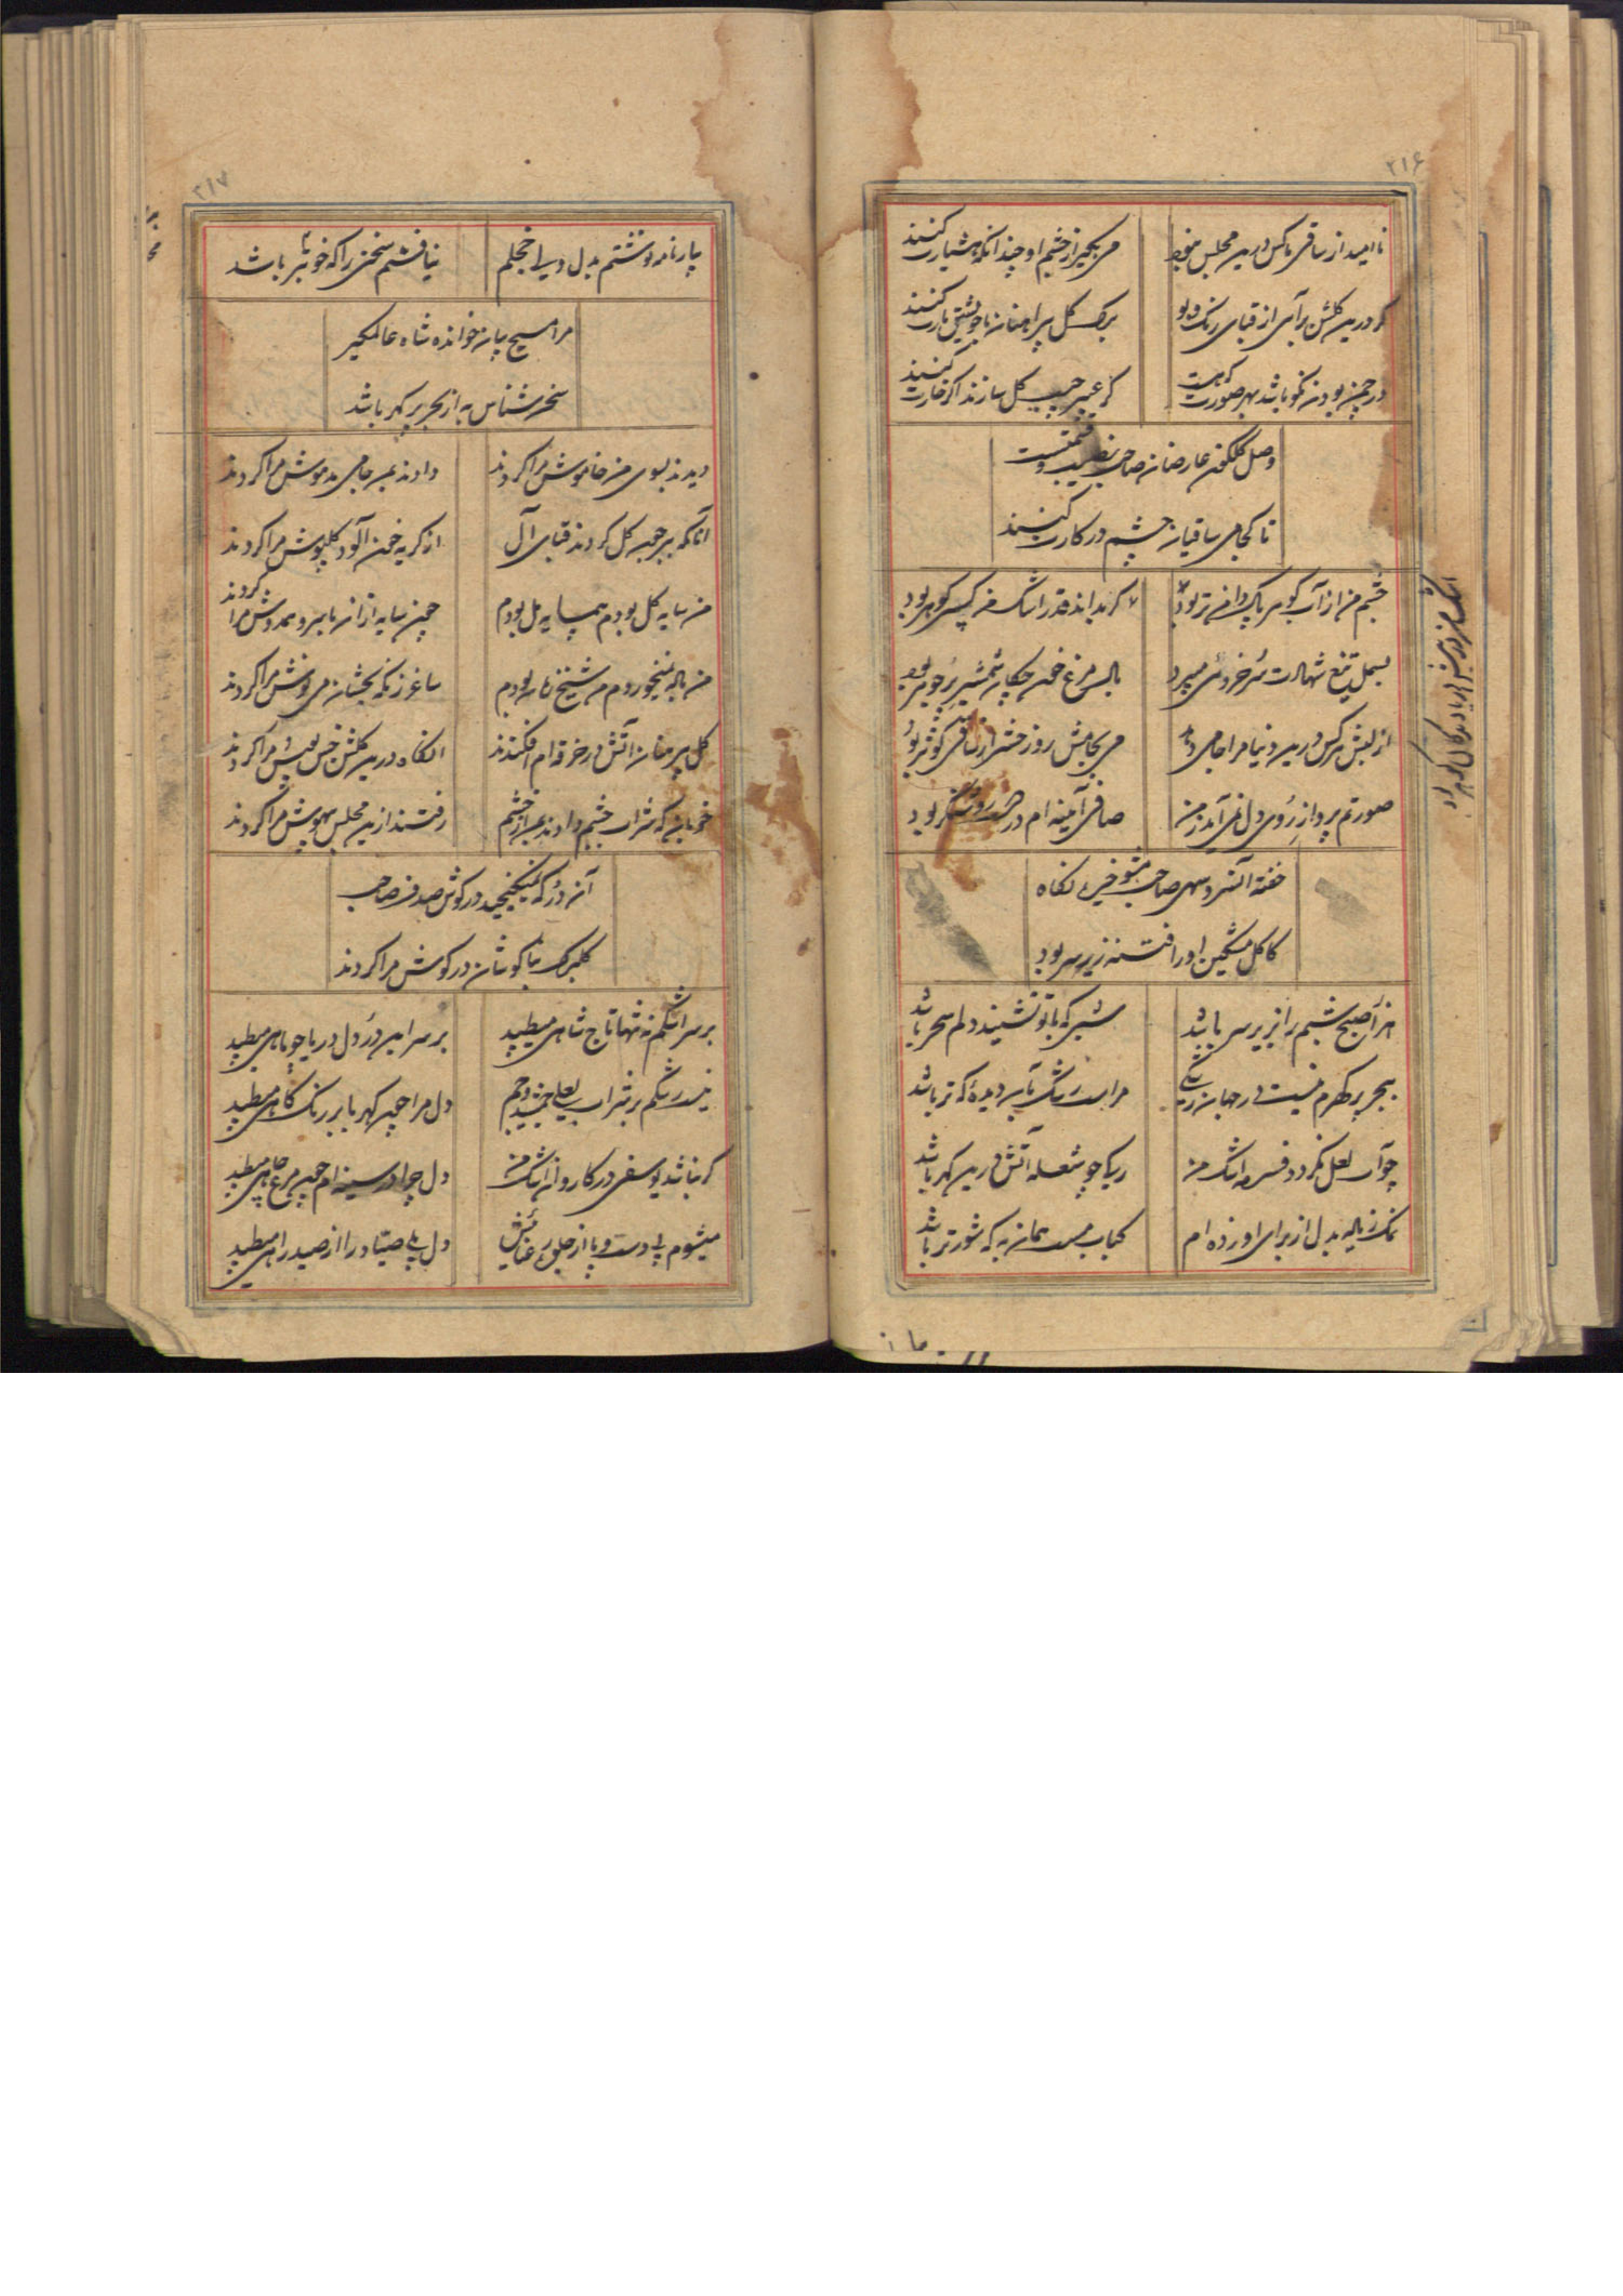 ۲۱۶
نا امید از ساقی ناکس درین مجلس
می بگیر از چشم او چندانکه هشیارت کنند
کر درین کلشن برآی از قبای رنک و بو
برک کل پیراهنان با خویشتن یارت کنند
در چمن بودن نکو باشد بهر صورت که هست
کر عبیر جیب کل سازند اکر خارت کنند
وصل کلکون عارضان صاحب نصیب و قسمتست
تا کجا می ساقیان چشم در کارت کنند
چشم من از آب کوهر پاک دامن تر بود
کر بداند قدر اشک من کسی کوهر بود
بسمل تیغ شهادت سرخ روئی میبرد
بال مرغ خون چکان شمشیر پر جوهر بود
از لبش هرکس درین دنیا مرا جامی دهد
می بجامش روز حشر از ساقی کوثر بود
صورتم پرواز روی دل نمی آید ز من
صافی آئینه ام در دست روشنکر بود
خفته آن سرو سهی صاحب شوخی نکاه
کاکل مشکین او را فتنه زیر سر بود
هزار صبح شبم را بزیر سر باشد
شبی که با تو نشیند دلم سحر باشد
ببحر پر کهرم نیست در جهان رشکی
مراست رشک بآن دیدهٔ که تر باشد
چو آب لعل نکردد فسرده اشک من
ریا چو شعله آتش درین کهر باشد
نمک ز ناله بدل از برای او زده ام
کباب مست همان به که شورتر باشد
۲۱۷
بیار نامه نوشتم بدل ولی خجلم
نیافتم سخنی را که خوبتر باشد
مرا مسیح بیان خوانده شاه عالمکیر
سخن شناس به از بحر پر کهر باشد
دیدند بسوی من خاموش مرا کردند
دادند بمن جامی مدهوش مرا کردند
آنانکه بر جیب کل کردند قبای آل
از کریه خون آلود کلپوش مرا کردند
من سایه کل بودم همسایه مل بودم
چون سایه از آن با سرو همدوش مرا کردند
من باده نمیخوردم من شیخ زمان بودم
ساغر زنکه بخشان می نوش مرا کردند
کل پیرهنان آتش در خرقه ام افکندند
آنکاه درین کلشن خس پوش مرا کردند
خوبان که شراب چشم دادند بمن از چشم
رفتند ازین مجلس بیهوش مرا کردند
آن در که نمیکنجید در کوش صدف صاحب
کلبرک بناکوشان در کوش مرا کردند
بر سر اشکم نه تنها تاج شاهی میطپد
بر سر این در دل دریا چو ماهی میطپد
نیست رشکم بر شراب لعلی جمشید و جم
دل مرا چون کهربا بر رنک کاهی میطپد
کر نباشد یوسفی در کاروان اشک من
دل چرا در سینه ام چون مرغ چاهی میطپد
میشوم بی دست و پا از جلوه رعنائیش
دل پی صیاد را از صید راهی میطپد